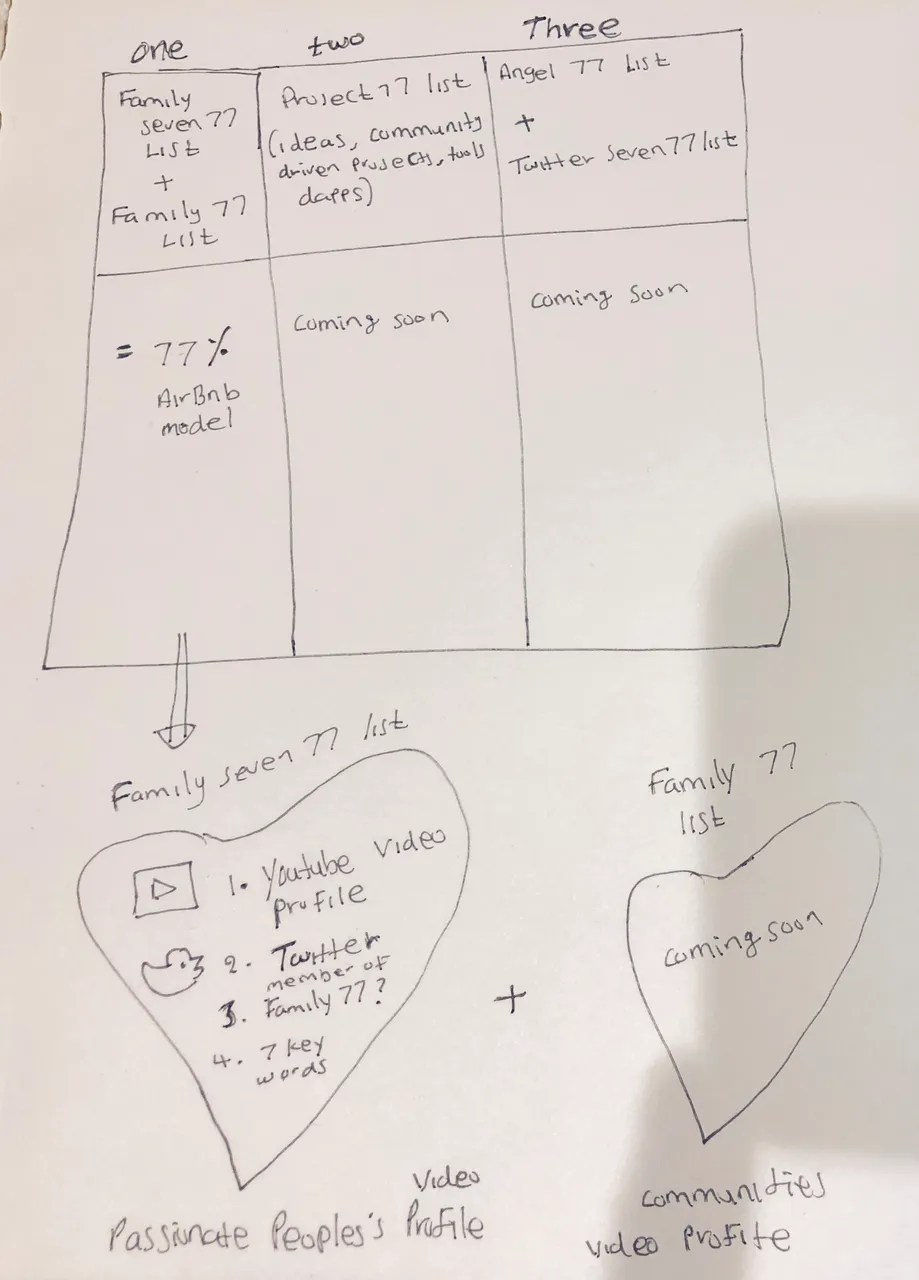 one
two
Three
Family
seven 77
List
+
Family 77
List
Project 77 list
(ideas, community
driven projects, tools
dapps)
Angel 77 List
+
Twitter Seven 77 list
= 77%
AirBnb
model
Coming soon
Coming soon
Family seven 77 list
1. Youtube video
profile
2. Twitter
member of
3. Family 77?
4. 7 key
words
+
Family 77
list
Coming soon
Video
Passionate Peoples's Profile
communities
video profile